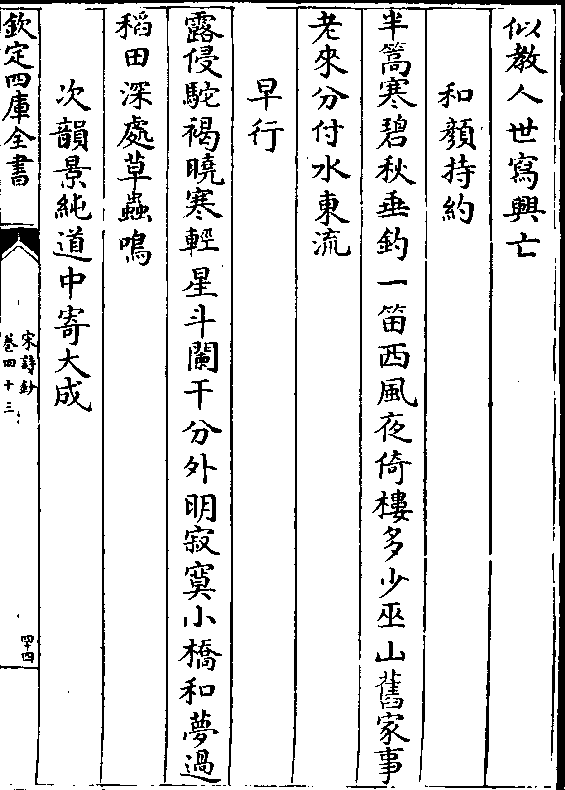 似教人世寫興亡
和顏持約
半篙寒碧秋垂釣一笛西風夜倚樓多少巫山舊家事
老來分付水東流
早行
露侵駝褐曉寒輕星斗闌干分外明寂寞小橋和夢過
稻田深處草蟲鳴
次韻景純道中寄大成
欽定四庫全書
宋詩鈔
卷四十三
四十四